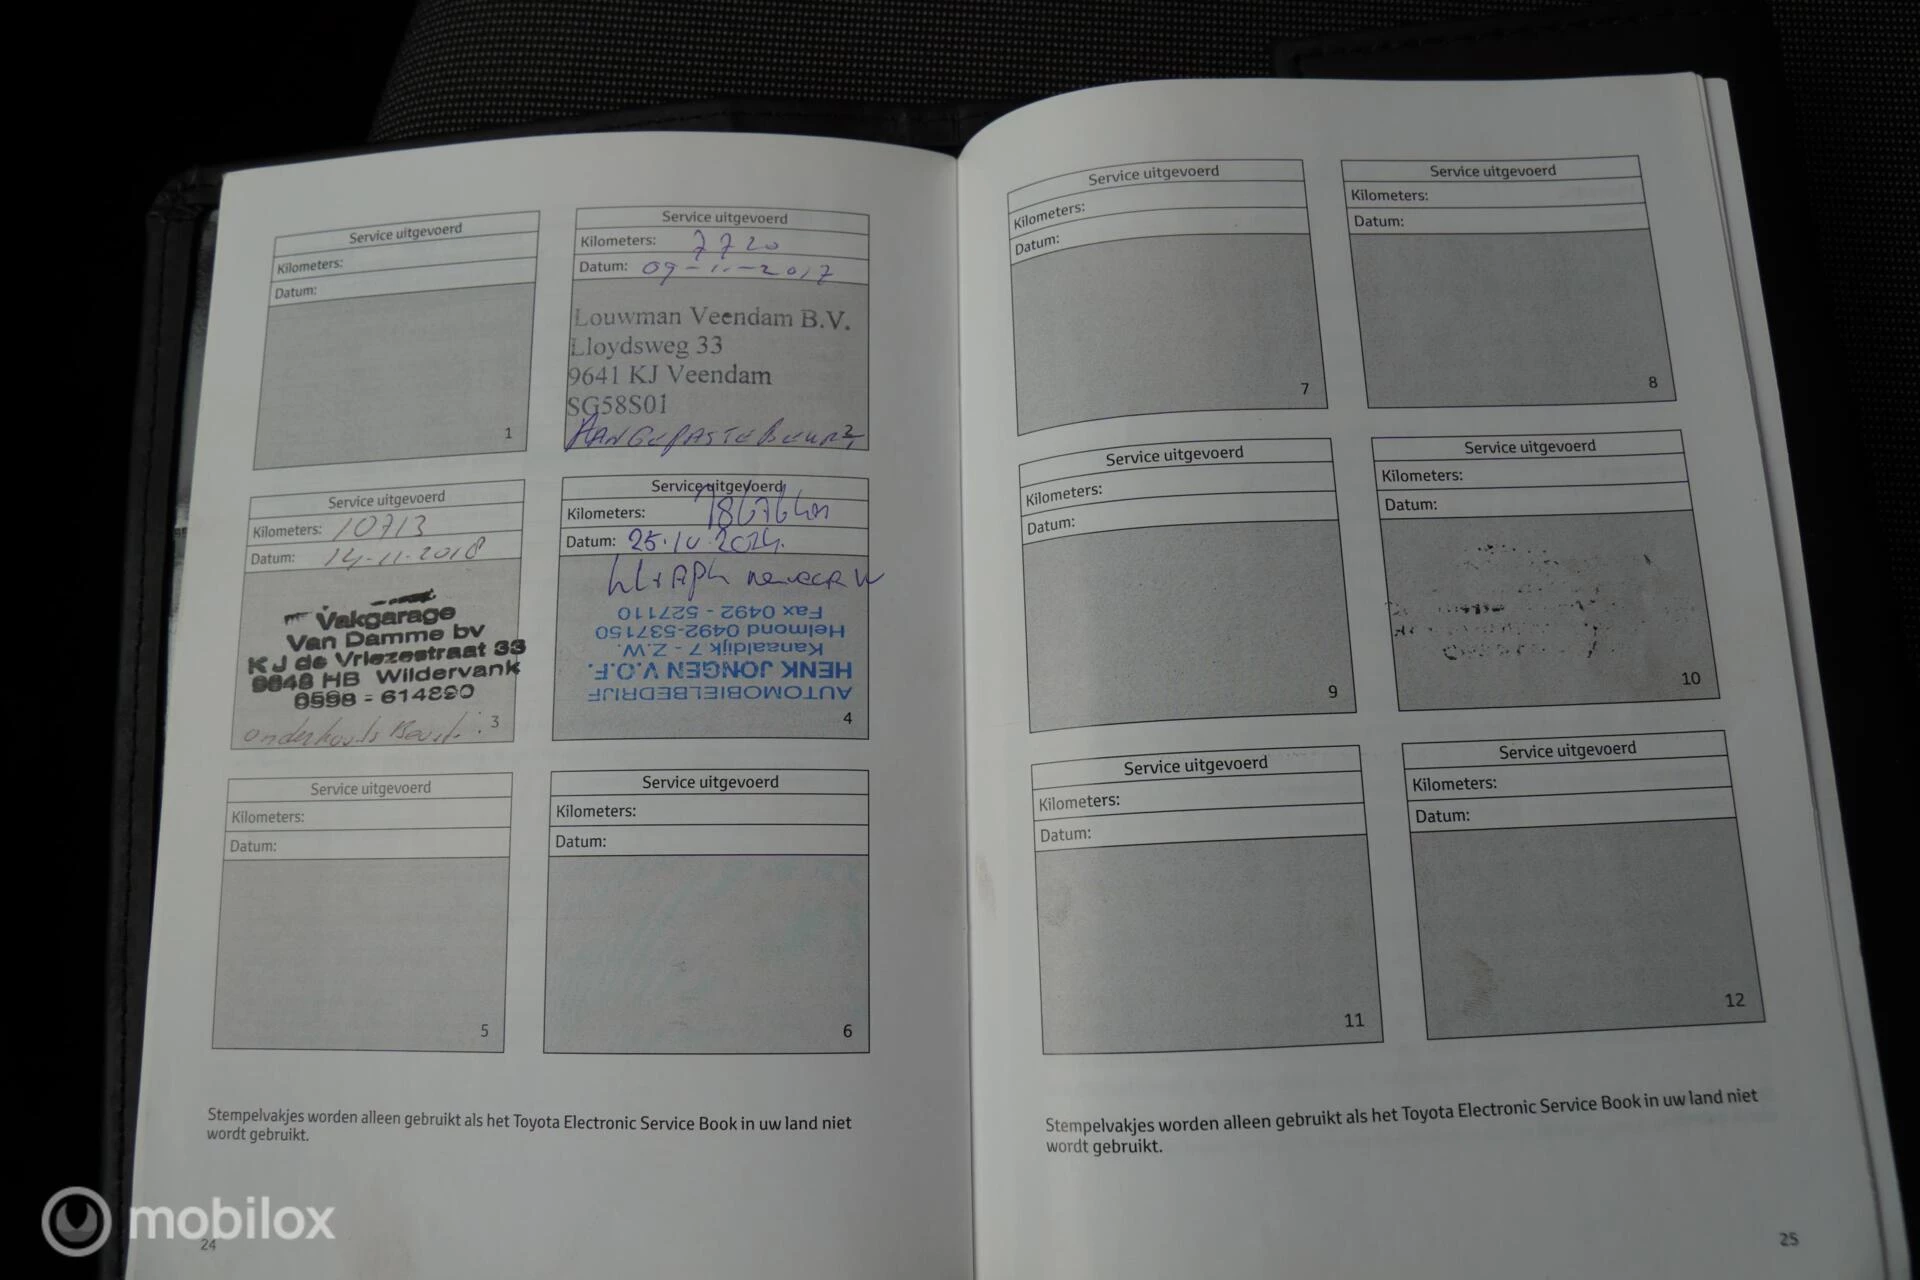 Service uitgevoerd
Kilometers:
Datum:
1
Service uitgevoerd
Kilometers: 7720
Datum: 09-11-2017
Louwman Veendam B.V.
Lloydsweg 33
9641 KJ Veendam
SG58S01
AANGEPASTE BEURT
2
Service uitgevoerd
Kilometers: 10713
Datum: 14-11-2018
Vakgarage
Van Damme bv
K J de Vriezestraat 33
9648 HB Wildervank
0598 - 614890
onderhouds Beurt.
3
Service uitgevoerd
Kilometers: 18676 km
Datum: 25.10.2024.
AUTOMOBIELBEDRIJF
HENK JONGEN V.O.F.
Kanaaldijk 7 - Z.W.
Helmond 0492-537150
Fax 0492 - 527110
4
Service uitgevoerd
Kilometers:
Datum:
5
Service uitgevoerd
Kilometers:
Datum:
6
Stempelvakjes worden alleen gebruikt als het Toyota Electronic Service Book in uw land niet
wordt gebruikt.
24
Service uitgevoerd
Kilometers:
Datum:
7
Service uitgevoerd
Kilometers:
Datum:
8
Service uitgevoerd
Kilometers:
Datum:
9
Service uitgevoerd
Kilometers:
Datum:
10
Service uitgevoerd
Kilometers:
Datum:
11
Service uitgevoerd
Kilometers:
Datum:
12
Stempelvakjes worden alleen gebruikt als het Toyota Electronic Service Book in uw land niet
wordt gebruikt.
25
mobilox